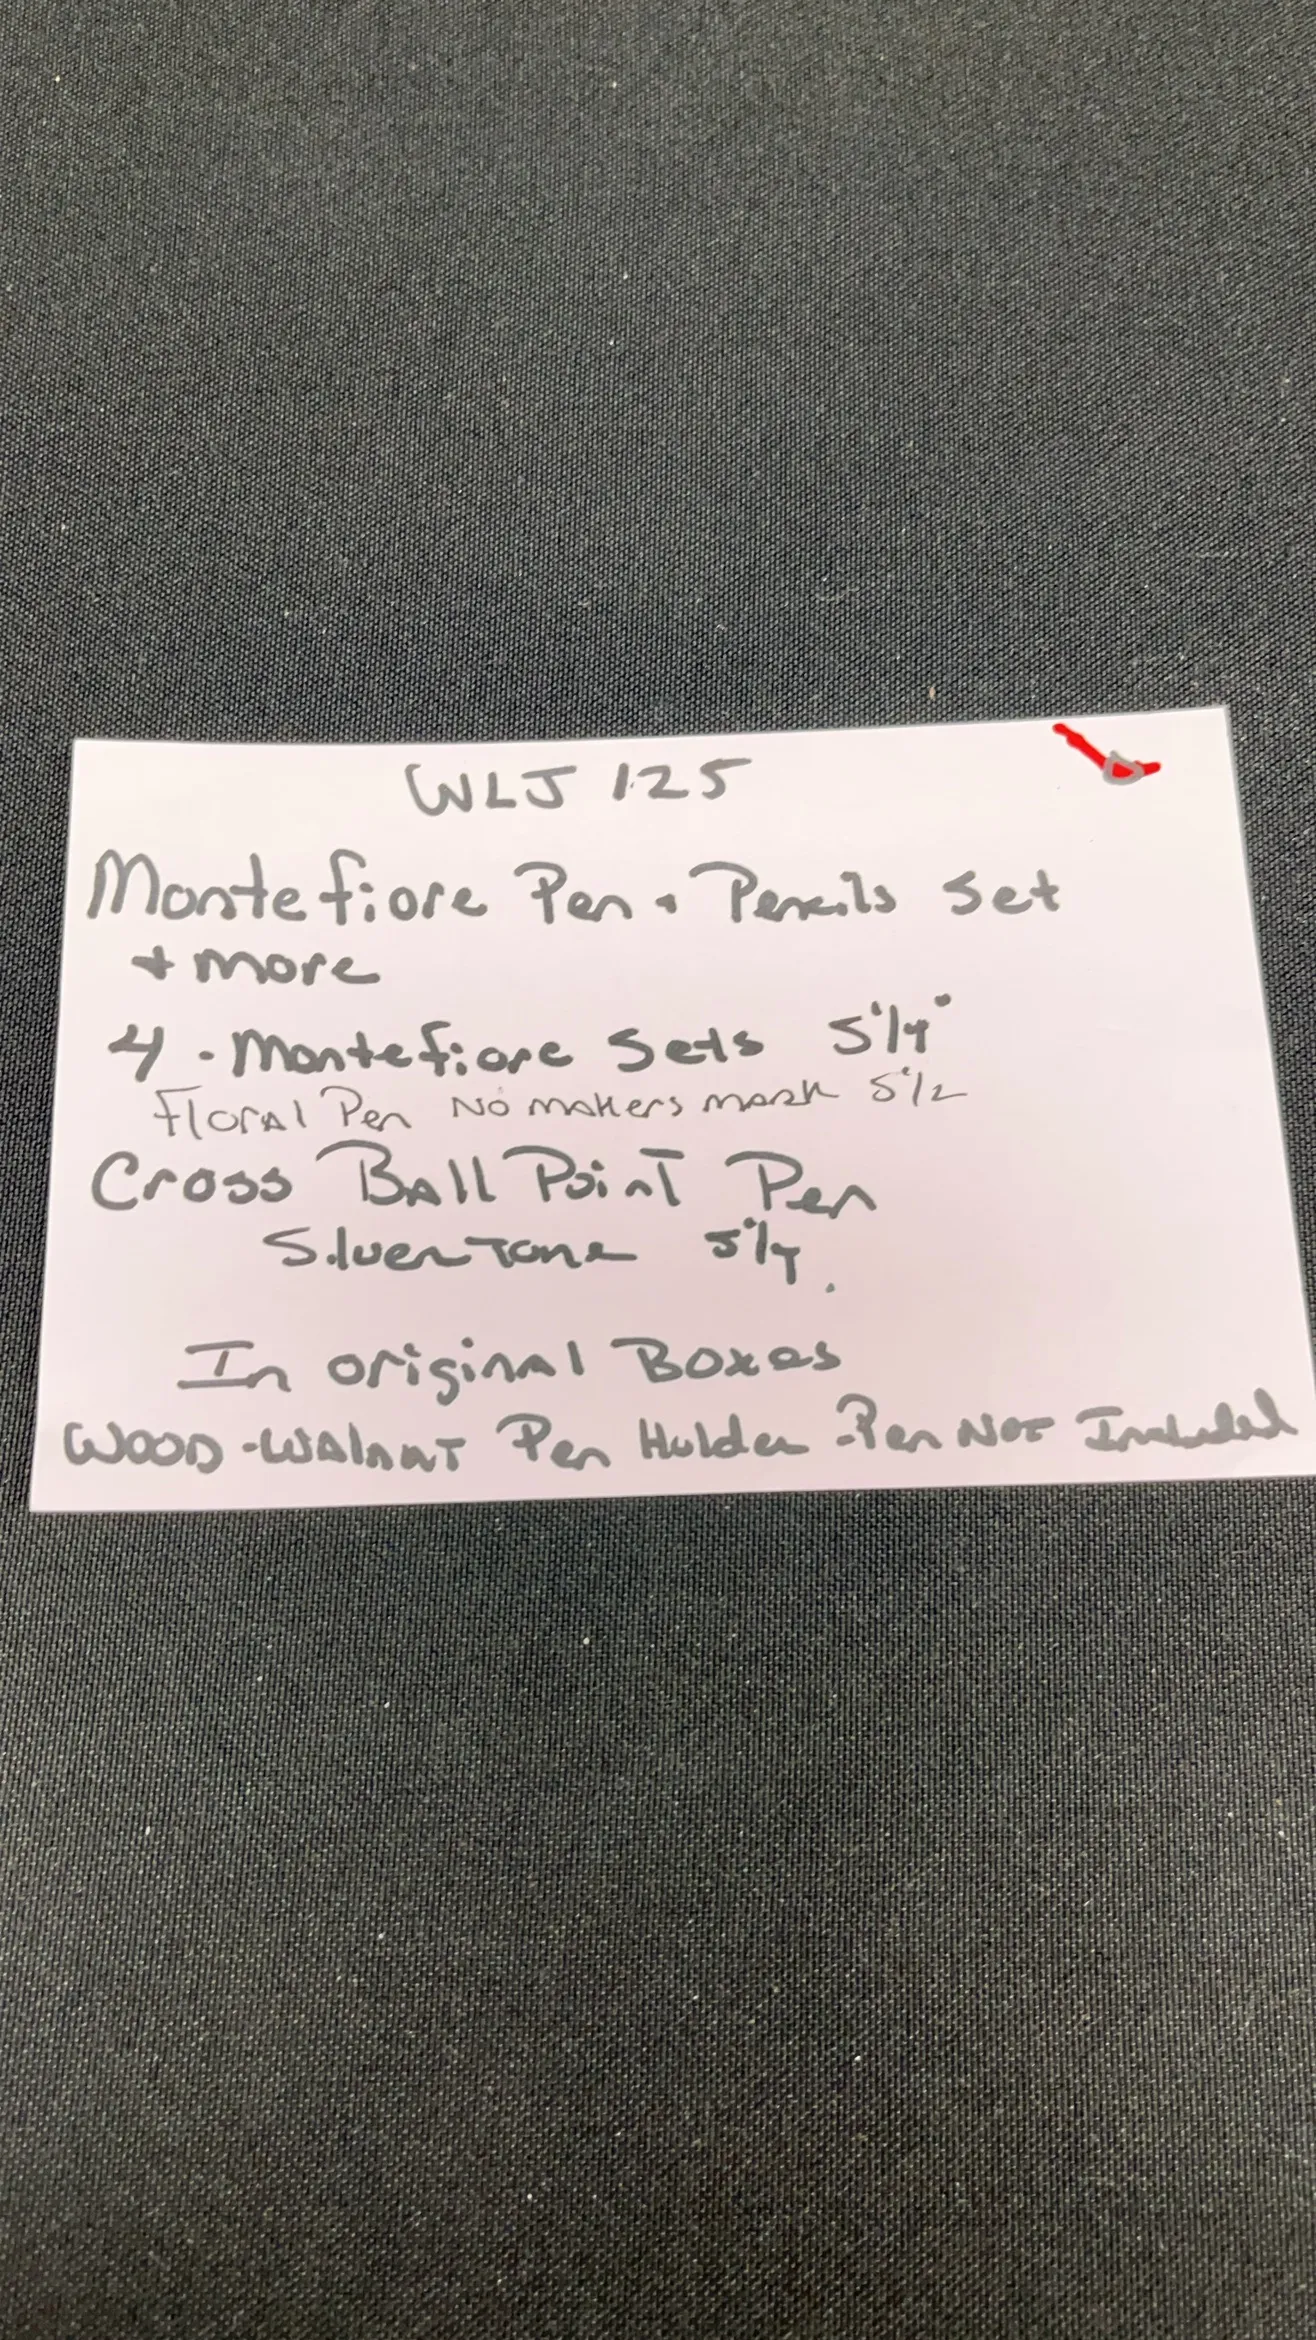 WLJ 125
Montefiore Pen + Pencils Set
+ more
4 - Montefiore Sets 5 1/4"
Floral Pen No makers mark 5 1/2
Cross Ball Point Pen
Silver Tone 5 1/4
In original Boxes
Wood - Walnut Pen Holder - Pen Not Included